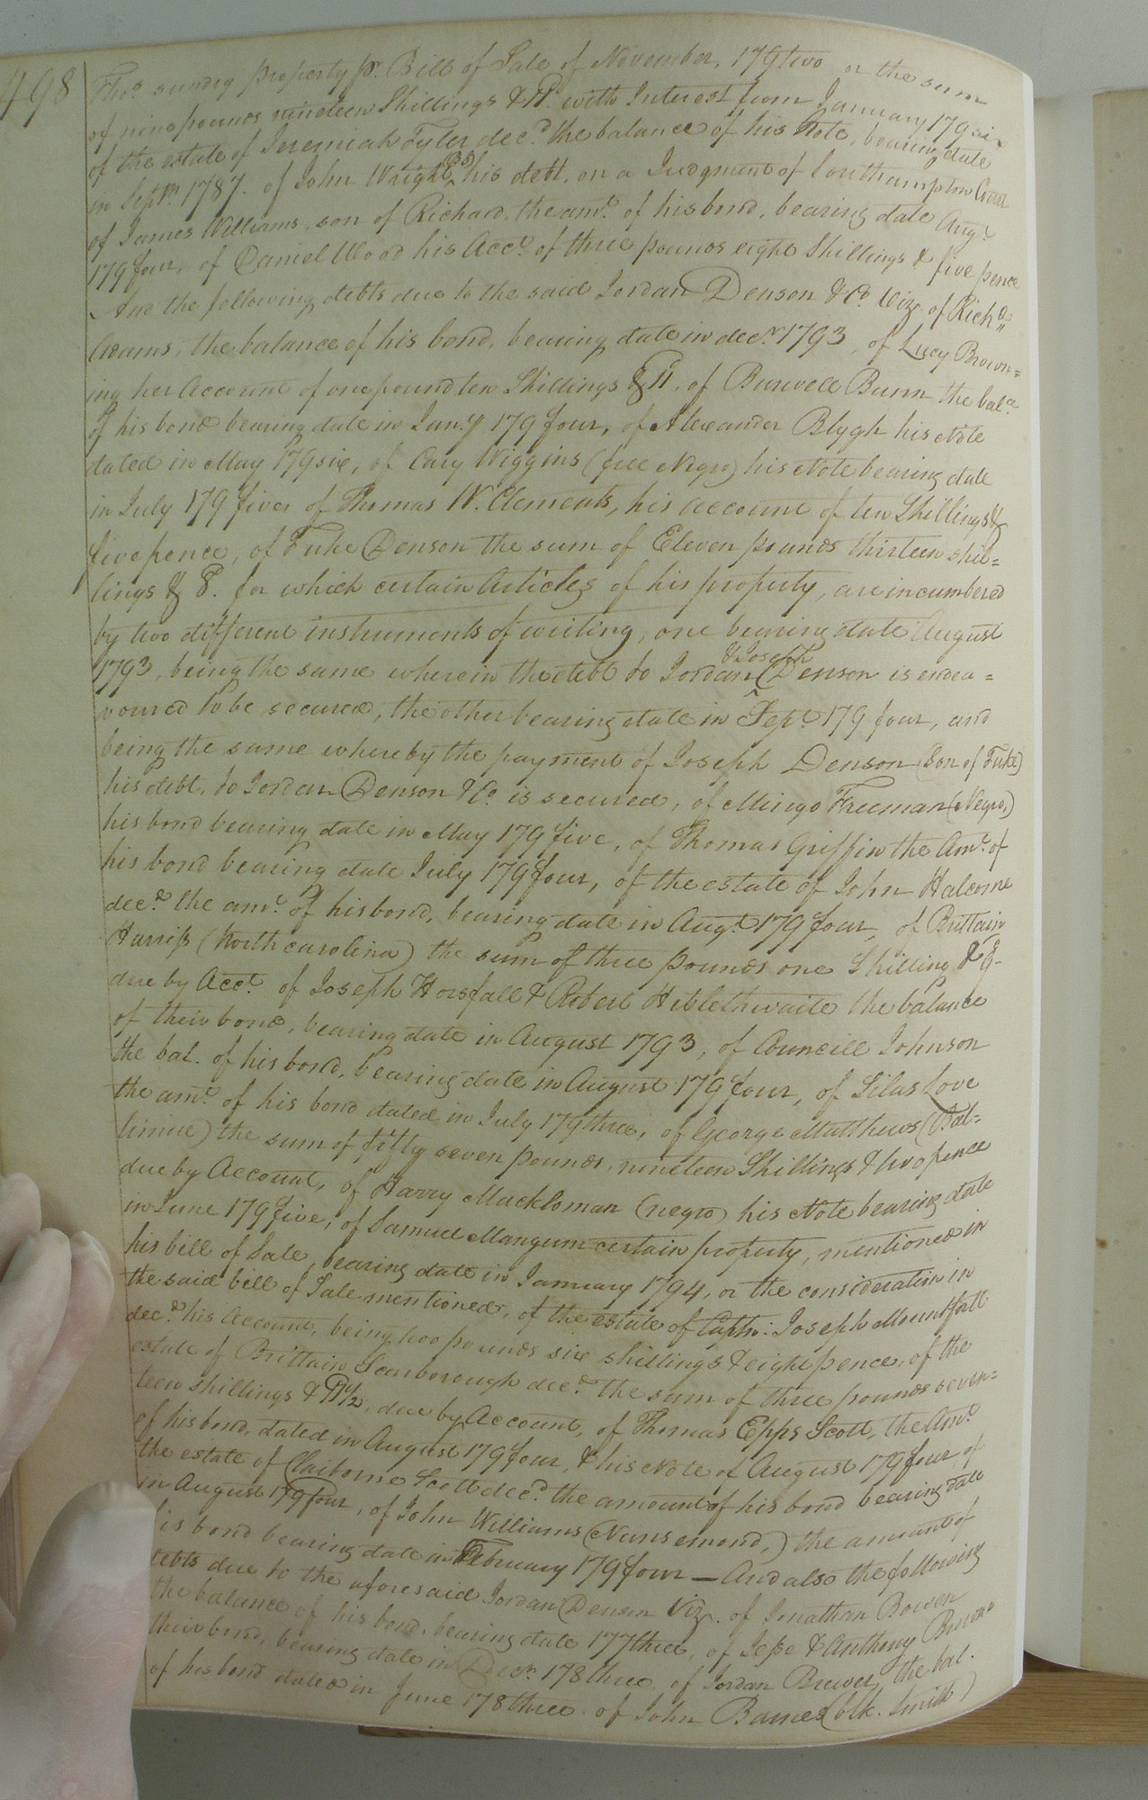 498
Thos. sundry property pr. Bill of Sale of November, 179two or the sum
of nine pounds nineteen Shillings & 11d. with Interest from January 179six
of the estate of Jeremiah Tyler decd. the balance of his Note, bearing date
in Septr. 1787. of John Wright his debt, on a Judgment of Southampton Court
of James Williams, son of Richard, the amt. of his bond, bearing date Augt.
179four, of Daniel Wood his Acct. of three pounds eight Shillings & five pence
And the following debts due to the said Jordan Denson & Co. Viz. of Richd.
Adams, the balance of his bond, bearing date in decr. 1793, of Lucy Brown=
ing her Account of one pound ten Shillings & 11. of Burwell Bunn the bala.
of his bond bearing date in Jany. 179four, of Alexander Blygh his Note
dated in May 179six, of Cary Wiggins (free Negro) his Note bearing date
in July 179five, of Thomas W. Clements, his account of ten Shillings &
five pence, of Tuke Denson the sum of Eleven pounds thirteen shil=
lings & 8. for which certain Articles of his property, are incumbered
by two different instruments of writing, one bearing date August
& Joseph
1793, being the same wherein the debt to Jordan ^ Denson is endea=
voured to be secured, the other bearing date in Sept. 179four, and
being the same whereby the payment of Joseph Denson (Son of Tuke)
his debt, to Jordan Denson & Co. is secured, of Mingo Freeman (Negro,)
his bond bearing date in May 179five, of Thomas Griffin the Amt. of
his bond bearing date July 179four, of the estate of John Halcome
decd. the amt. of his bond, bearing date in Augt. 179four, of Brittain
Harriss (North carolina) the sum of three pounds one Shilling & 9.
due by Acct. of Joseph Horsfall & Robert Heblethwaite the balance
of their bond, bearing date in August 1793, of Councill Johnson
the bal. of his bond, bearing date in August 179four, of Silas Love
the amt. of his bond dated in July 179three, of George Matthews (Bal=
timue) the sum of fifty seven pounds, nineteen Shillings & two pence
due by Account, of Harry Mackloman (negro) his Note bearing date
in June 179five, of Samuel Mangum certain property, mentioned in
his bill of Sale, bearing date in January 1794, or the consideration in
the said bill of Sale mentioned, of the estate of Captn: Joseph Mountfall
decd. his Account, being two pounds six shillings & eight pence, of the
estate of Brittain Scarborough decd. the sum of three pounds seven=
teen shillings & 11½, due by Account, of Thomas Epps Scott, the Amt.
of his bond, dated in August 179four, & his Note of August 179four, of
the estate of Claiborne Scott decd. the amount of his bond bearing date
in August 179four, of John Williams (Nansemond,) the amount of
his bond bearing date in February 179four — And also the following
debts due to the aforesaid Jordan Denson Viz. of Jonathan Bowen
the balance of his bond, bearing date 177three, of Jesse & Anthony
their bond, bearing date in Decr. 178three, of Jordan Brewer, the bal.
of his bond dated in June 178three of John Barnes (blk. Smith)